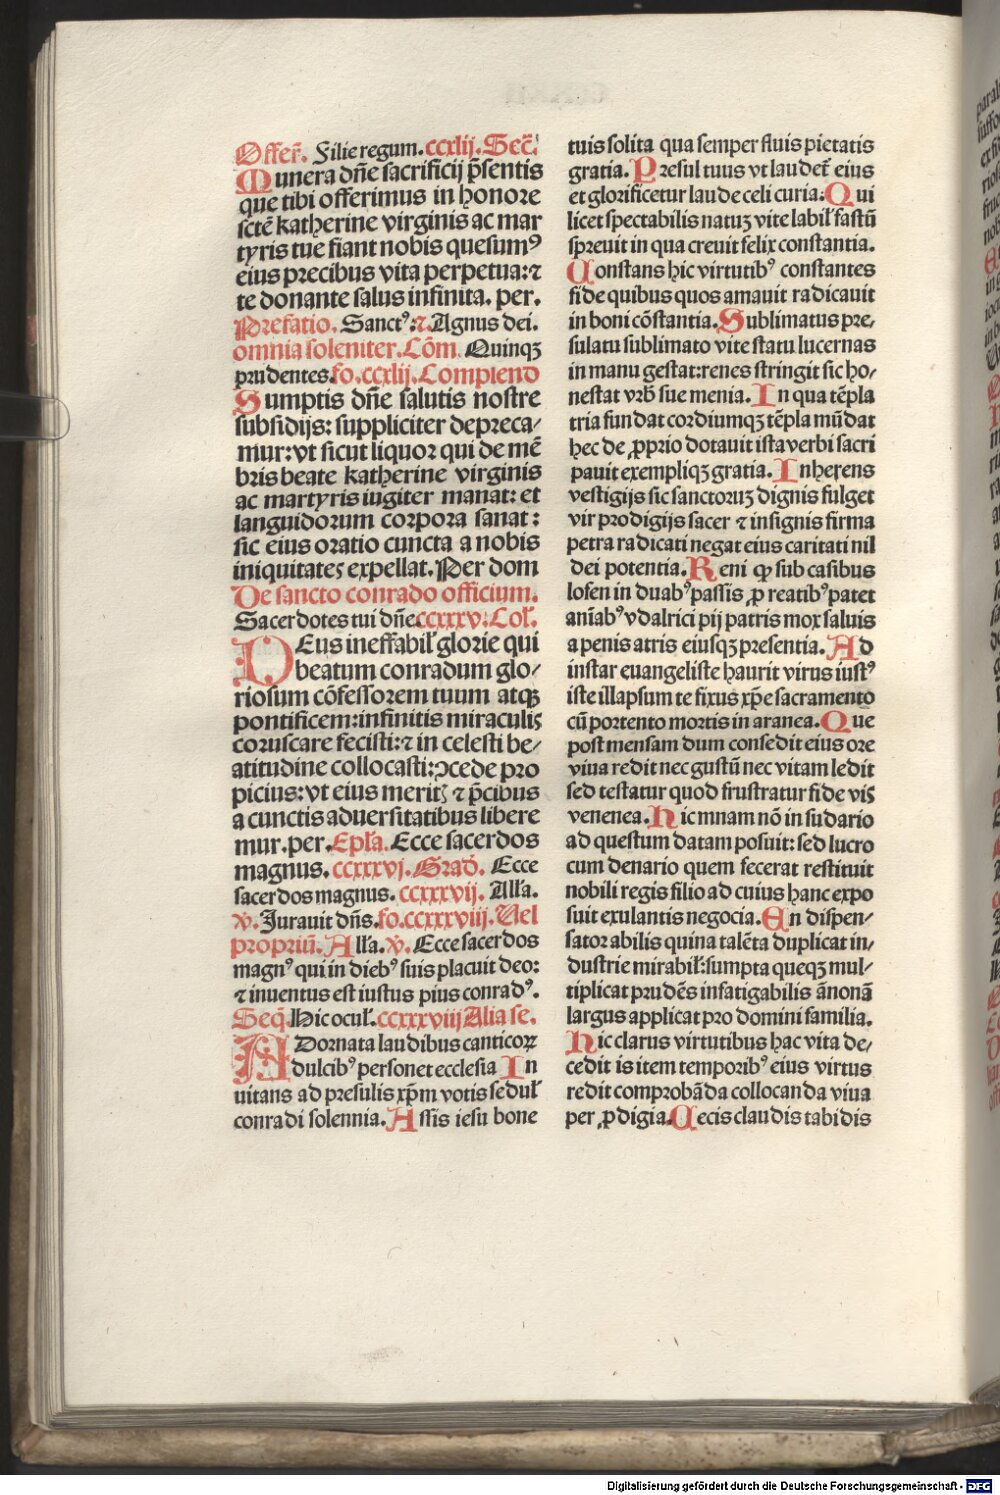 Offer̄. Filie regum. ccxlij. Sec̄.
Munera dn̄e sacrificij p̄sentis
que tibi offerimus in honore
sctē katherine virginis ac mar
tyris tue fiant nobis quesumꝰ
eius precibus vita perpetua: ⁊
te donante salus infinita. per.
Prefatio. Sanctꝰ: ⁊. Agnus dei.
omnia soleniter. Cōm. Quinqꝫ
prudentes. fo. ccxlij. Complend
Sumptis dn̄e salutis nostre
subsidijs: suppliciter depreca-
mur: vt sicut liquor qui de mē
bris beate katherine virginis
ac martyris iugiter manat: et
languidorum corpora sanat:
sic eius oratio cuncta a nobis
iniquitates expellat. Per dom
De sancto conrado officium.
Sacerdotes tui dn̄e. ccxxxv. Col̄.
DEus ineffabil̄ glorie qui
beatum conradum glo-
riosum cōfessorem tuum atqꝫ
pontificem: infinitis miraculis
coruscare fecisti: ⁊ in celesti be-
atitudine collocasti: ꝯcede pro
picius: vt eius meritꝭ ⁊ p̄cibus
a cunctis aduersitatibus libere
mur. per. Epl̄a. Ecce sacerdos
magnus. ccxxxvj. Grad̄. Ecce
sacerdos magnus. ccxxxvij. All̄a.
℣. Jurauit dn̄s. fo. ccxxxviij. Uel
propriū. All̄a. ℣. Ecce sacerdos
magnꝰ qui in diebꝰ suis placuit deo:
⁊ inuentus est iustus pius conradꝰ.
Seq̄. Hic ocul̄. ccxxxviij Alia se.
ADornata laudibus canticoꝝ
dulcibꝰ personet ecclesia In
uitans ad presulis xp̄m votis sedul̄
conradi solennia. Assis iesu bone
tuis solita qua semper fluis pietatis
gratia. Presul tuus vt laudet̄ eius
et glorificetur laude celi curia: Qui
licet spectabilis natuꝫ vite labil̄ fastū
spreuit in qua creuit felix constantia.
Constans hic virtutibꝰ constantes
fide quibus quos amauit radicauit
in boni cōstantia. Sublimatus pre-
sulatu sublimato vite statu lucernas
in manu gestat: renes stringit sic ho-
nestat vrb̄ sue menia. In qua tēpla
tria fundat cordiumqꝫ tēpla mūdat
hec de ꝓprio dotauit ista verbi sacri
pauit exempliqꝫ gratia. Inherens
vestigijs sic sanctoruꝫ dignis fulget
vir prodigijs sacer ⁊ insignis firma
petra radicati negat eius caritati nil
dei potentia. Reni ꝙ sub casibus
losen in duabꝰ passis ꝓ reatibꝰ patet
aniābꝰ vdalrici pij patris mox saluis
a penis atris eiusqꝫ presentia. Ad
instar euangeliste haurit virus iustꝰ
iste illapsum te fixus xp̄e sacramento
cū portento mortis in aranea. Que
post mensam dum consedit eius ore
viua redit nec gustū nec vitam ledit
sed testatur quod frustratur fide vis
venenea. Hic mnam nō in sudario
ad questum datam posuit: sed lucro
cum denario quem fecerat restituit
nobili regis filio ad cuius hanc expo
suit exulantis negocia. En dispen-
sator abilis quina talēta duplicat in-
dustrie mirabil̄: sumpta queqꝫ mul-
tiplicat prudēs infatigabilis ānonā
largus applicat pro domini familia.
Hic clarus virtutibus hac vita de-
cedit is item temporibꝰ eius virtus
redit comprobāda collocanda viua
per ꝓdigia. Cecis claudis tabidis
Digitalisierung gefördert durch die Deutsche Forschungsgemeinschaft - DFG